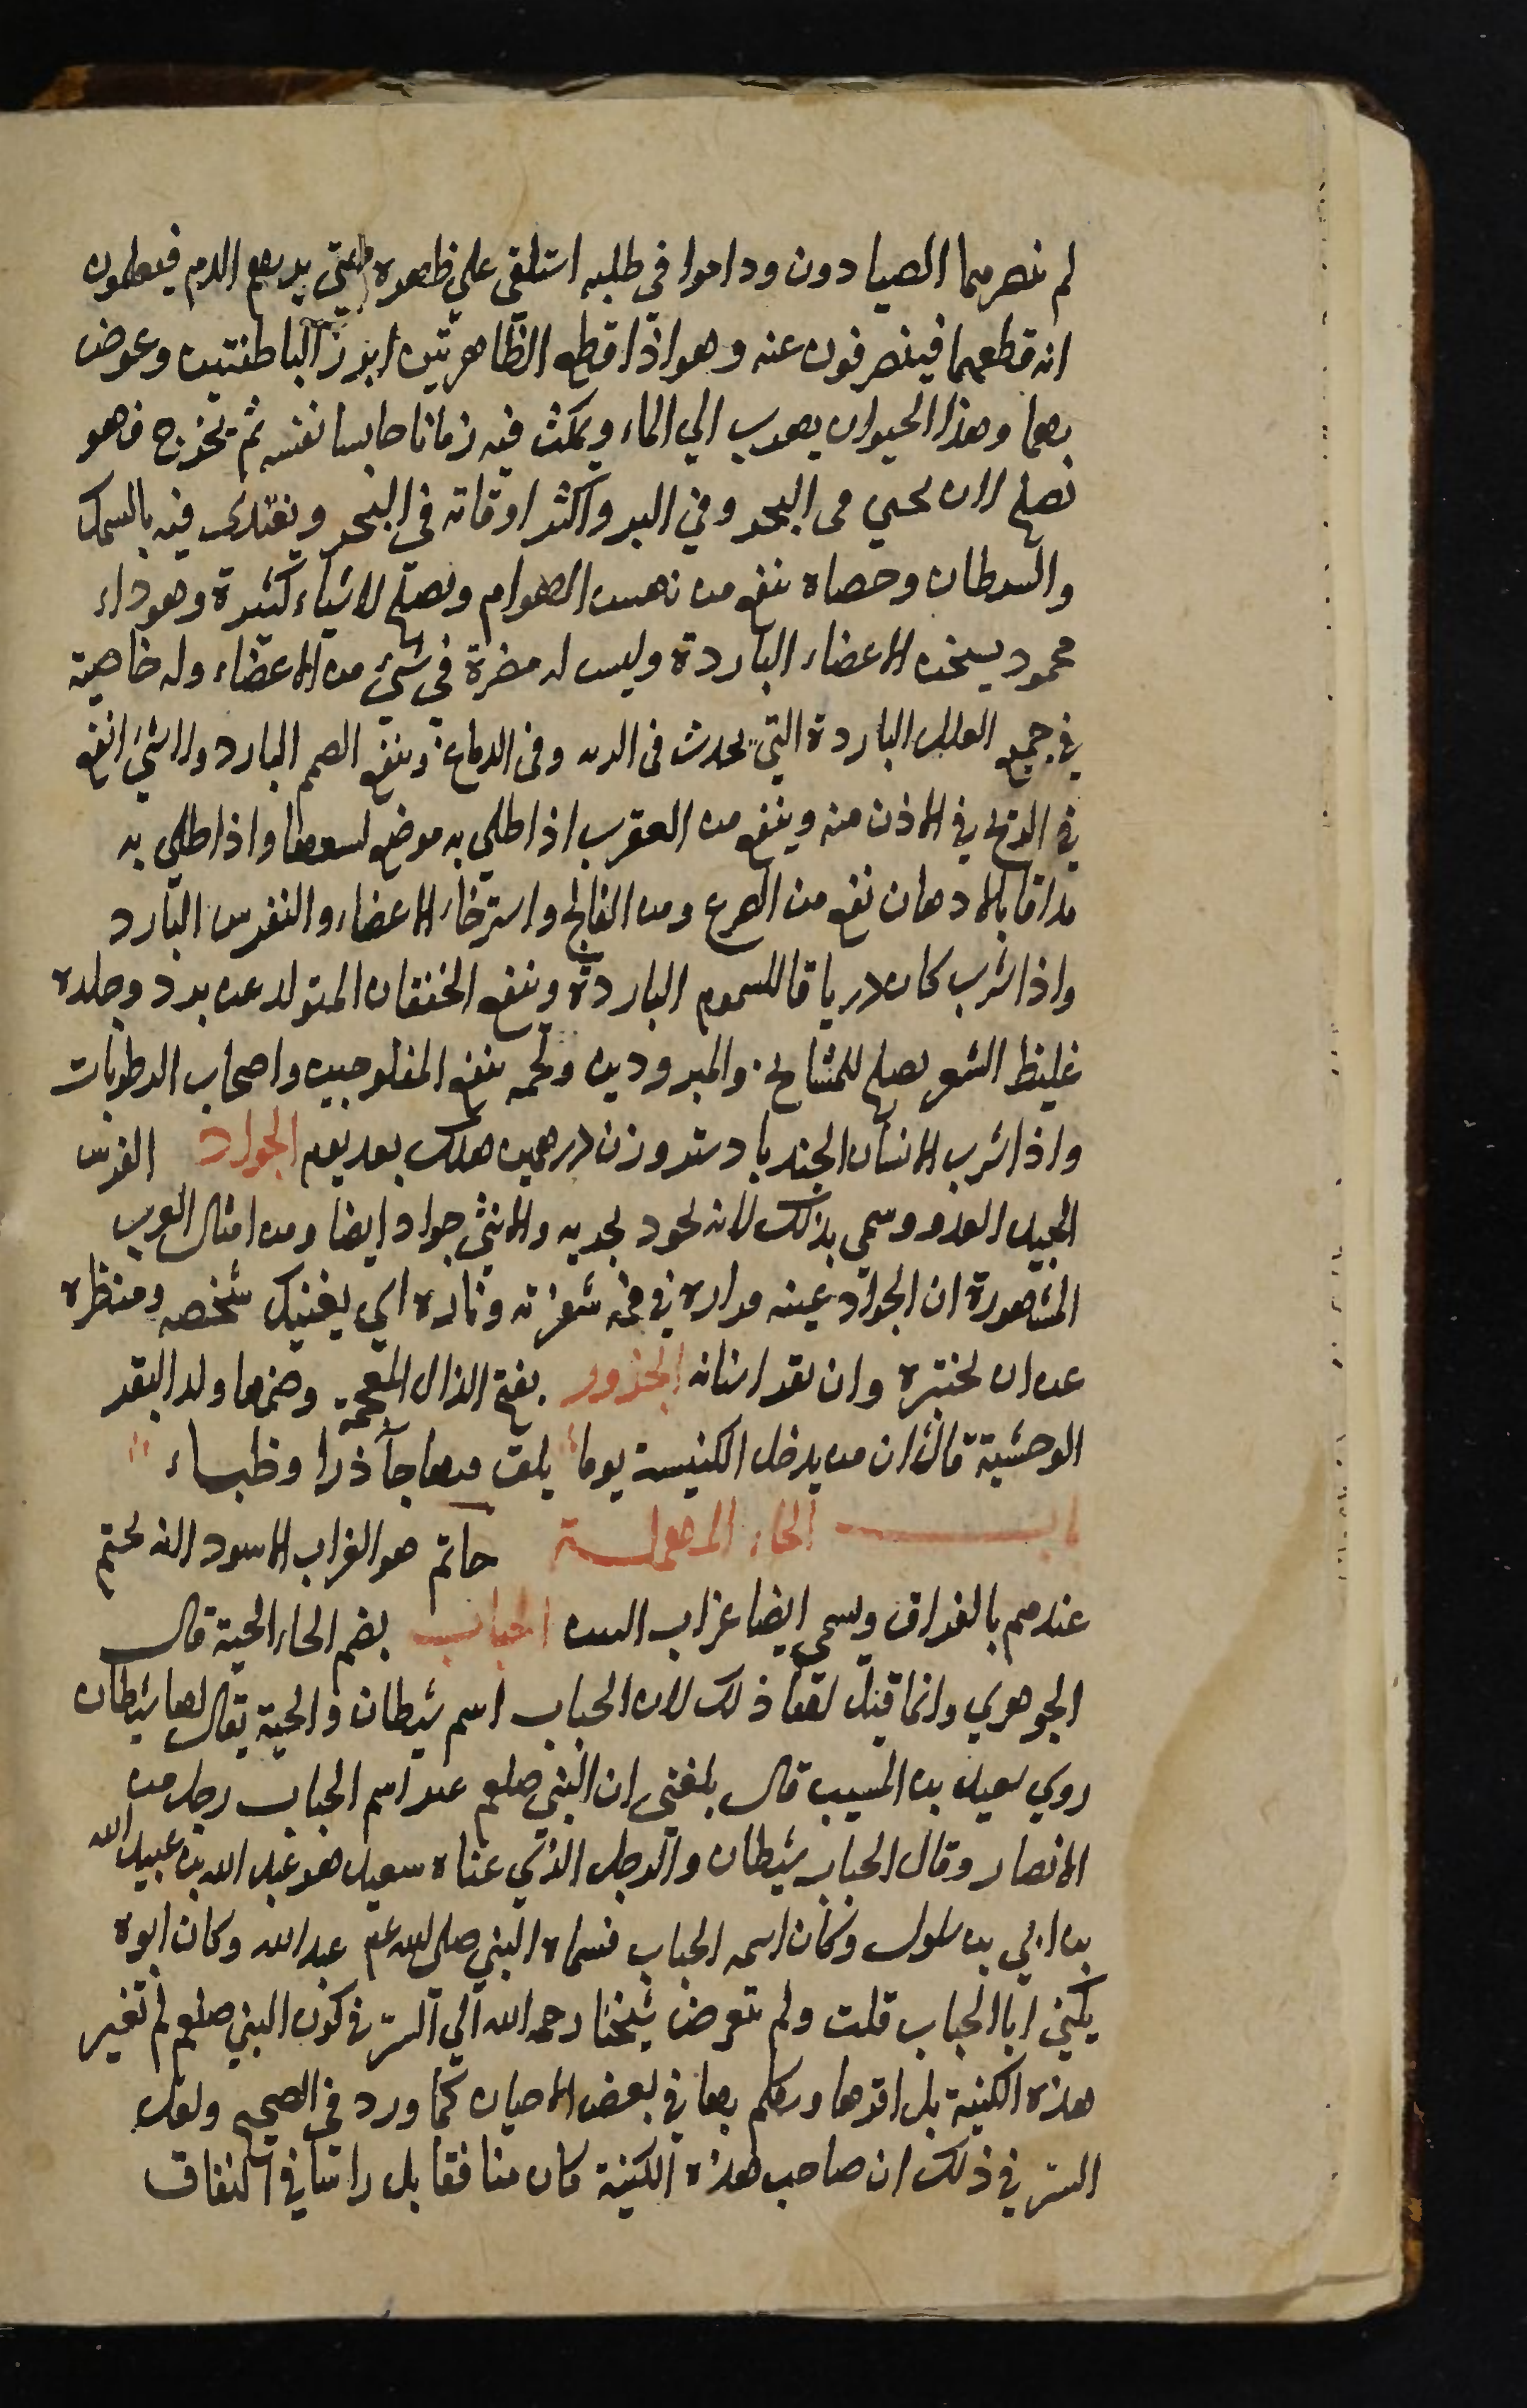 لم نصرمهما الصيادون وداموا في طلبه استلقى علي ظهره حتي يريهم الدم فيعلمون
انه قطعهما فينصرفون عنه وهو اذا قطع الظاهرتين ابرز الباطنتين وعوض
بهما وهذا الحيوان يهرب الي الماء ويمكث فيه زمانا حابسا نفسه ثم يخرج فهو
نصلح لان يحيي في البحر وفي البر واكثر اوقاته في البحر ويغتدى فيه بالسمك
والسرطان وخصاه ينفع من نهس الهوام ويصلح لاشياء كثيرة وهو دواء
محمود يسخن الاعضاء الباردة وليس له مضرة في شيء من الاعضاء وله خاصية
في جميع العلل الباردة التي تحدث في الرئه وفي الدماغ وينفع الصمم البارد ولا شيء انفع
في الريح في الاذن منه وينفع من العقرب اذا طلي به موضع لسعها واذا طلي به
مدافا بالادهان نفع من الصرع ومن الفالج واسترخاء الاعضاء والنقرس البارد
واذا شرب كان درياقا للسموم الباردة وينفع الخفقان المتولد عن برد وجلده
غليظ الشعر يصلح للمشايخ والمبرودين ولحمه ينفع المفلوجين واصحاب الرطوبات
واذا شرب الانسان الجندبادستر وزن درهمين هلك بعد يوم الجواد الفرس
الجيد العدو وسمي بذلك لانه يجود بجريه والانثي جواد ايضا ومن امثال العرب
المشهورة ان الجواد عينه فراره في فمه شفرته وناره اي يغنيك شخصه ومنظره
عن ان تختبره وان تقر اسنانه الجذور بفتح الذال المعجمة وضمها ولد البقر
الوحشية قال ان من يدخل الكنيسة يوما يلق فيها جآذرا وظباء
باب الحاء المهملة حاتم هو الغراب الاسود لانه يحتم
عندهم بالفراق ويسمي ايضا غراب البين الحباب بضم الحاء الحية قال
الجوهري وانما قيل لها ذلك لان الحباب اسم شيطان والحية يقال لها شيطان
روي سعيد بن المسيب قال بلغني ان النبي صلعم غير اسم الحباب رجل من
الانصار وقال الحباب شيطان والرجل الذي عناه سعيد هو عبد الله بن عبيد الله
بن ابي بن سلول وكان اسمه الحباب فسماه النبي صلى الله عم عبد الله وكان ابوه
يكني ابا الحباب قلت ولم يتعرض شيخنا رحمه الله الي السر في كون النبي صلعم لم تغير
هذه الكنية بل اقرها وتكلم بها في بعض الاحيان كما ورد في الصحيح ولعل
السر في ذلك ان صاحب هذه الكنية كان منافقا بل راسا في النفاق